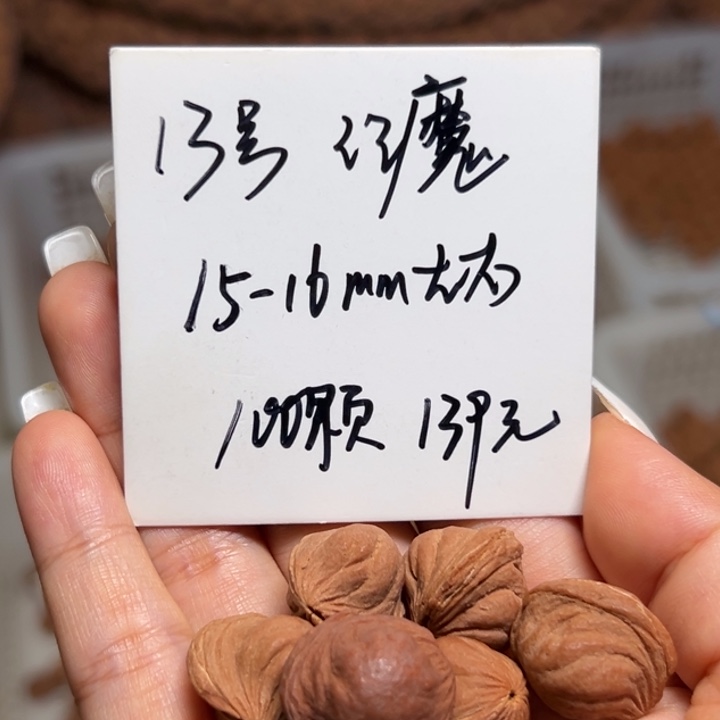 13号
15-16mm左右
100颗 139元